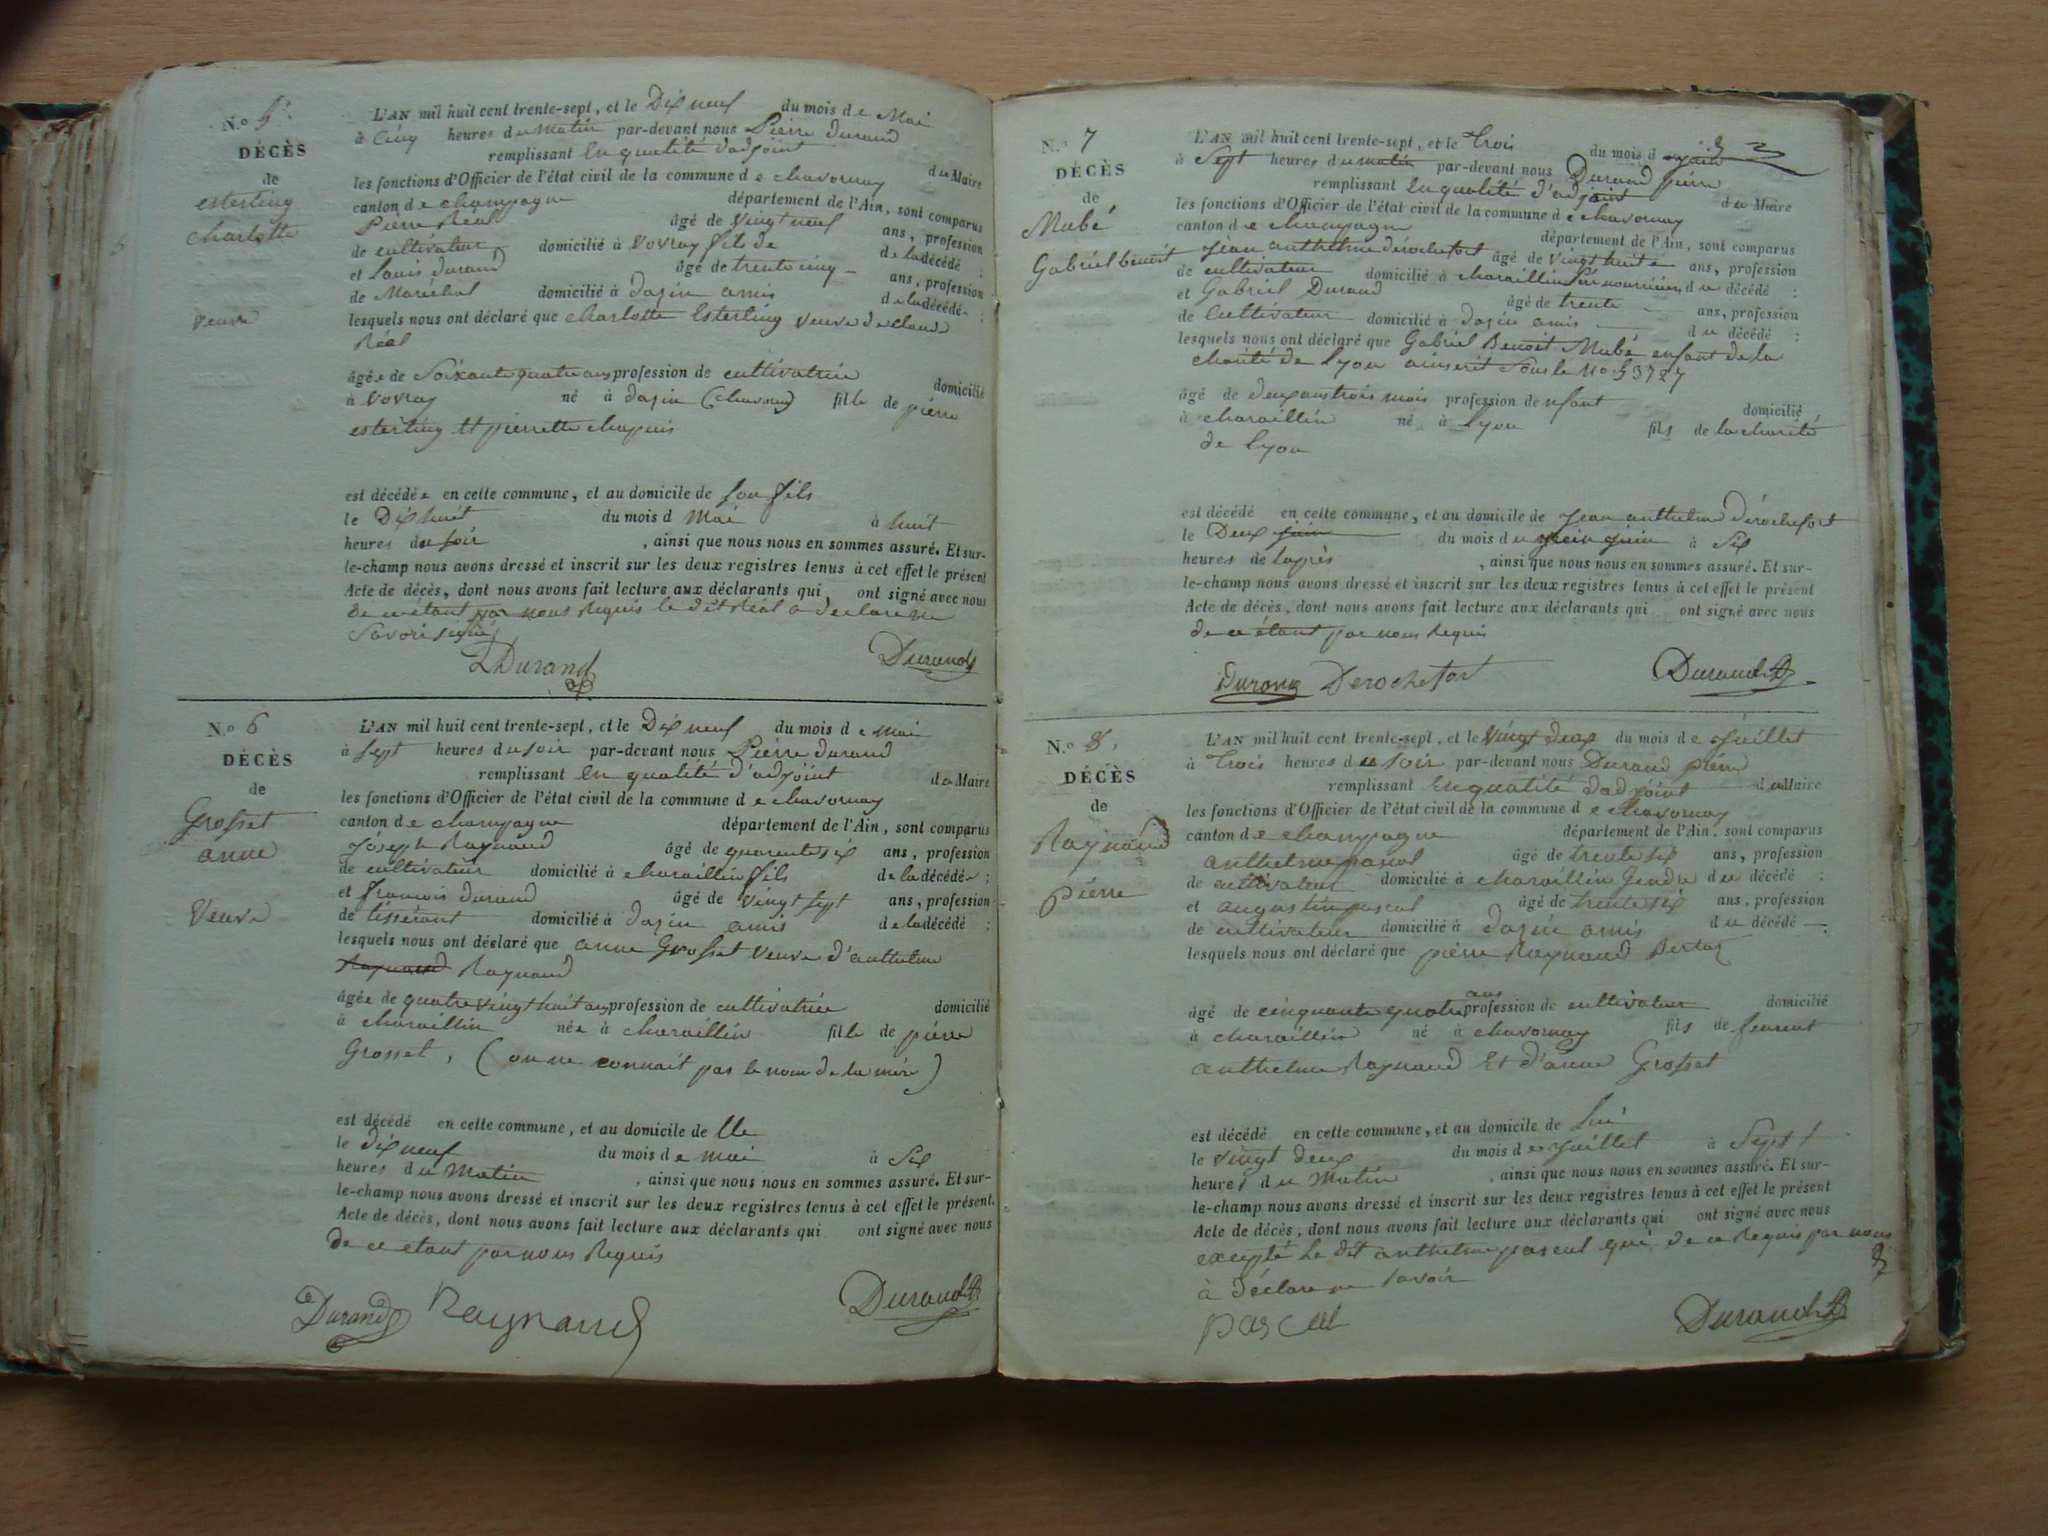 N.o 5.
DÉCÈS
de
esterling
charlotte
veuve
L'AN mil huit cent trente-sept, et le Dix neuf du mois de Mai
à Cinq heures du matin par-devant nous Pierre durand
remplissant en qualité dadjoint du Maire
les fonctions d'Officier de l'état civil de la commune de chavornay
canton de champagne département de l'Ain, sont comparus
Pierre Réal âgé de vingt neuf ans, profession
de cultivateur domicilié à vovray fils de de la décédé ;
et Louis durand âgé de trente cinq ans, profession
de Maréchal domicilié à dazin amis de la décédée ;
lesquels nous ont déclaré que charlotte Esterling veuve de claude
Réal
âgée de Soixante quatre ans profession de cultivatrice domicilié
à vovray né à dazin (chavornay) fille de pierre
esterling et pierrette chapuis
est décédée en cette commune, et au domicile de son fils
le Dix huit du mois d Mai à huit
heures du soir , ainsi que nous nous en sommes assuré. Et sur-
le-champ nous avons dressé et inscrit sur les deux registres tenus à cet effet le présent
Acte de décès, dont nous avons fait lecture aux déclarants qui ont signé avec nous
de ce étant par nous Requis le dit Réal a déclaré ne
Savoir signé
LDurand Durand
N.o 6
DÉCÈS
de
Grosset
anne
Veuve
L'AN mil huit cent trente-sept, et le Dix neuf du mois de mai
à sept heures du soir par-devant nous Pierre durand
remplissant en qualité d'adjoint du Maire
les fonctions d'Officier de l'état civil de la commune de chavornay
canton de champagne département de l'Ain, sont comparus
Joseph Raynaud âgé de quarente six ans, profession
de cultivateur domicilié à charaillin fils de la décédée ;
et francois durand âgé de vingt sept ans, profession
de tisserant domicilié à dazin amis de la décédé ;
lesquels nous ont déclaré que anne Grosset veuve d'anthelme
Raynaud Raynaud
âgée de quatre vingt huit ans profession de cultivatrice domicilié
à charaillin née à charaillin fille de pierre
Grosset, (on ne connait pas le nom de la mère)
est décédé en cette commune, et au domicile de lle
le dix neuf du mois de mai à Six
heures du Matin , ainsi que nous nous en sommes assuré. Et sur-
le-champ nous avons dressé et inscrit sur les deux registres tenus à cet effet le présent.
Acte de décès, dont nous avons fait lecture aux déclarants qui ont signé avec nous
de ce etant par nous Requis
Durand Raynaud Durand
N.o 7
DÉCÈS
de
Mubé
Gabriel benoit
L'AN mil huit cent trente-sept, et le Trois du mois d juin
à Sept heures du matin par-devant nous Durand pierre
remplissant en qualité d'adjoint du Maire
les fonctions d'Officier de l'état civil de la commune de chavornay
canton de champagne département de l'Ain, sont comparus
Jean anthelme dérochefort âgé de vingt huit ans, profession
de cultivateur domicilié à charaillin Père nourricier du décédé ;
et Gabriel Durand âgé de trente ans, profession
de Cultivateur domicilié à dazin amis du décédé ;
lesquels nous ont déclaré que Gabriel Benoit Mubé enfant de la
charité de Lyon inscrit Sous le No 53727
âgé de deux ans trois mois profession de enfant domicilié
à charaillin né à Lyon fils de la charité
de Lyon
est décédé en cette commune, et au domicile de Jean anthelme Dérochefort
le Deux juin du mois du juin à Six
heures de laprès , ainsi que nous nous en sommes assuré. Et sur-
le-champ nous avons dressé et inscrit sur les deux registres tenus à cet effet le présent
Acte de décès, dont nous avons fait lecture aux déclarants qui ont signé avec nous
de ce étant par nous Requis
Durand Derochefort Durand
N.o 8.
DÉCÈS
de
Raynaud
pierre
L'AN mil huit cent trente-sept, et le Vingt deux du mois de Juillet
à Trois heures du soir par-devant nous Durand pierre
remplissant en qualité dadjoint du Maire
les fonctions d'Officier de l'état civil de la commune de chavornay
canton de champagne département de l'Ain, sont comparus
anthelme pascal âgé de trente six ans, profession
de cultivateur domicilié à charaillin Gendre du décédé ;
et augustin pascal âgé de trente six ans, profession
de cultivateur domicilié à dazin amis du décédé ;
lesquels nous ont déclaré que pierre Raynaud
âgé de cinquante quatre ans profession de cultivateur domicilié
à charaillin né à chavornay fils de feu
anthelme Raynaud Et d'anne Grosset
est décédé en cette commune, et au domicile de lui
le vingt deux du mois de Juillet à Sept
heures du Matin , ainsi que nous nous en sommes assuré. Et sur-
le-champ nous avons dressé et inscrit sur les deux registres tenus à cet effet le présent
Acte de décès, dont nous avons fait lecture aux déclarants qui ont signé avec nous
excepté le dit anthelme pascal qui de ce Requis par nous
à déclaré ne savoir
pascal Durand